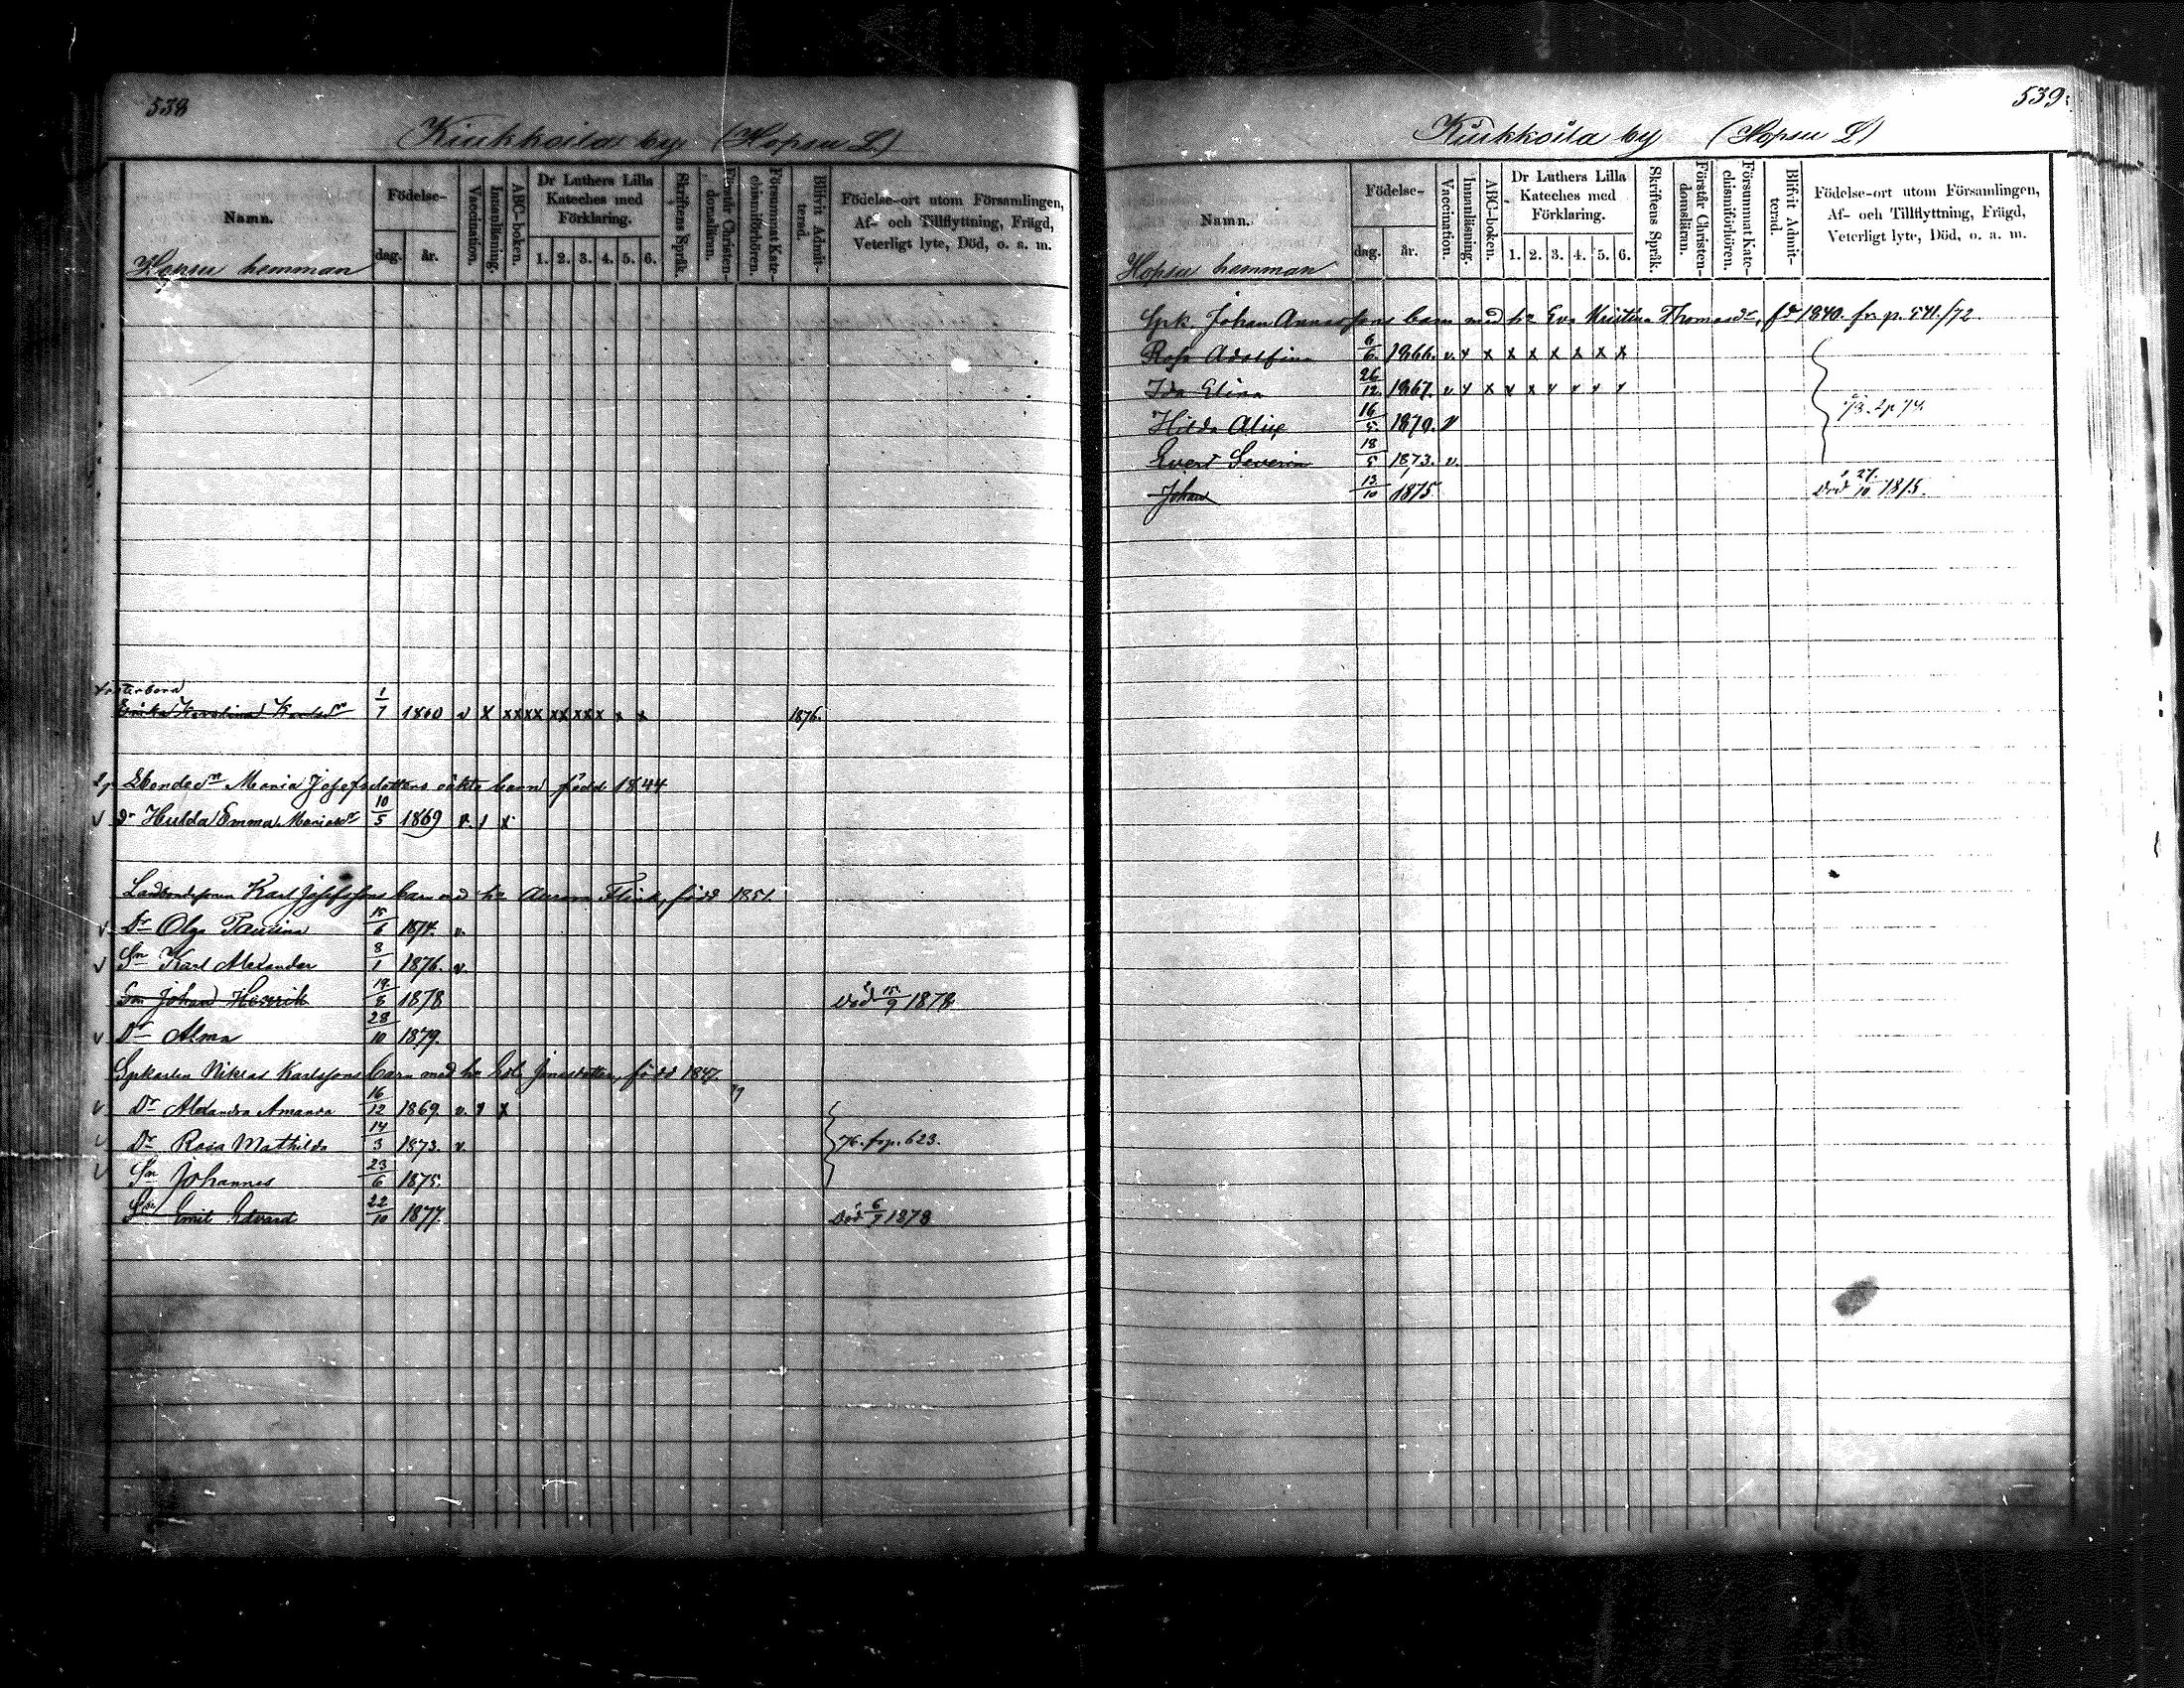 538
Kiukkoila by (Hopsu L)
Namn.
Födelse-
dag.
år.
Vaccination.
Innanläsning.
ABC-boken.
Dr Luthers Lilla Kateches med Förklaring.
1. 2. 3. 4. 5. 6.
Skriftens Språk.
Förstår Christendomsläran.
Försummat Katechismiförhören.
Blifvit Admitterad.
Födelse-ort utom Församlingen,
Af- och Tillflyttning, Frägd,
Veterligt lyte, Död, o. s. m.
Hopsu hemman
Fosterbarn
Erika Karolina Karlsdr 1/7 1860 v x xx xx xx xx x x x 1876.
Maria Josefsdotters oäkta barn född 1844
dr Hulda Emma Mariasdr 10/5 1869 v. 1 x
Landbondesonen Karl Josefssons barn med h:n Aurora Flink, född 1851.
v Dr Olga Paulina 15/6 1874. v.
v Sn Karl Alexander 8/1 1876. v.
Son Johan Henrik 19/8 1878 död 15/9 1878
v Dr Alma 28/10 1879.
Spkarlen Niklas Karlssons barn med h:n Eva Jonasdotter, född 1847.
v Dr Alexandra Amanda 16/12 1869. v. 1 x
v Dr Rosa Mathilda 14/3 1873. v. 76. frp. 623.
v Sn Johannes 23/6 1875.
Sn Emil Edvard 22/10 1877. Död 6/7 1878
539.
Kiukkoila by (Hopsu L)
Namn.
Födelse-
dag.
år.
Vaccination.
Innanläsning.
ABC-boken.
Dr Luthers Lilla Kateches med Förklaring.
1. 2. 3. 4. 5. 6.
Skriftens Språk.
Förstår Christendomsläran.
Försummat Katechismiförhören.
Blifvit Admitterad.
Födelse-ort utom Församlingen,
Af- och Tillflyttning, Frägd,
Veterligt lyte, Död, o. s. m.
Hopsu hemman
Spk. Johan Anderssons barn med h:n Eva Kristina Thomasdr, fdd 1840. fr p. 541./72
Rosa Adolfina 6/6. 1866. v. x x x x x x x x
Ida Elina 26/12. 1867. v x x x x x x x x
Hilda Alise 16/5. 1870. v
Evert Severin 18/5 1873. v.
Johan 13/10 1875 Död 27/10 1875.